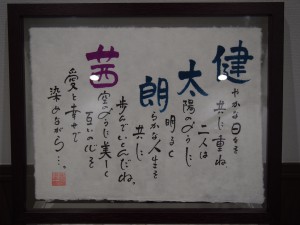 健やかな日々を
共に重ね
二人は
太陽のように
明るく
朗らかな人生を
共に
歩んでいくんだね。
茜空のように美しく
互いの心を
愛と幸せで
染めながら…。